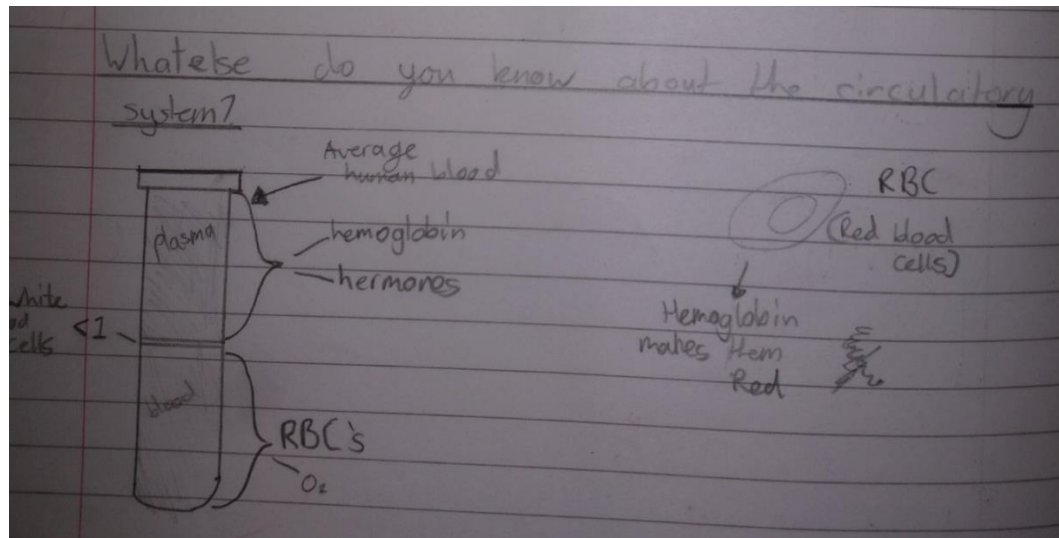 What else do you know about the circulatory
system?
Average
human blood
plasma
hemoglobin
hermones
<1
cells
blood
RBC's
O₂
RBC
(Red blood
cells)
Hemoglobin
makes them
Red